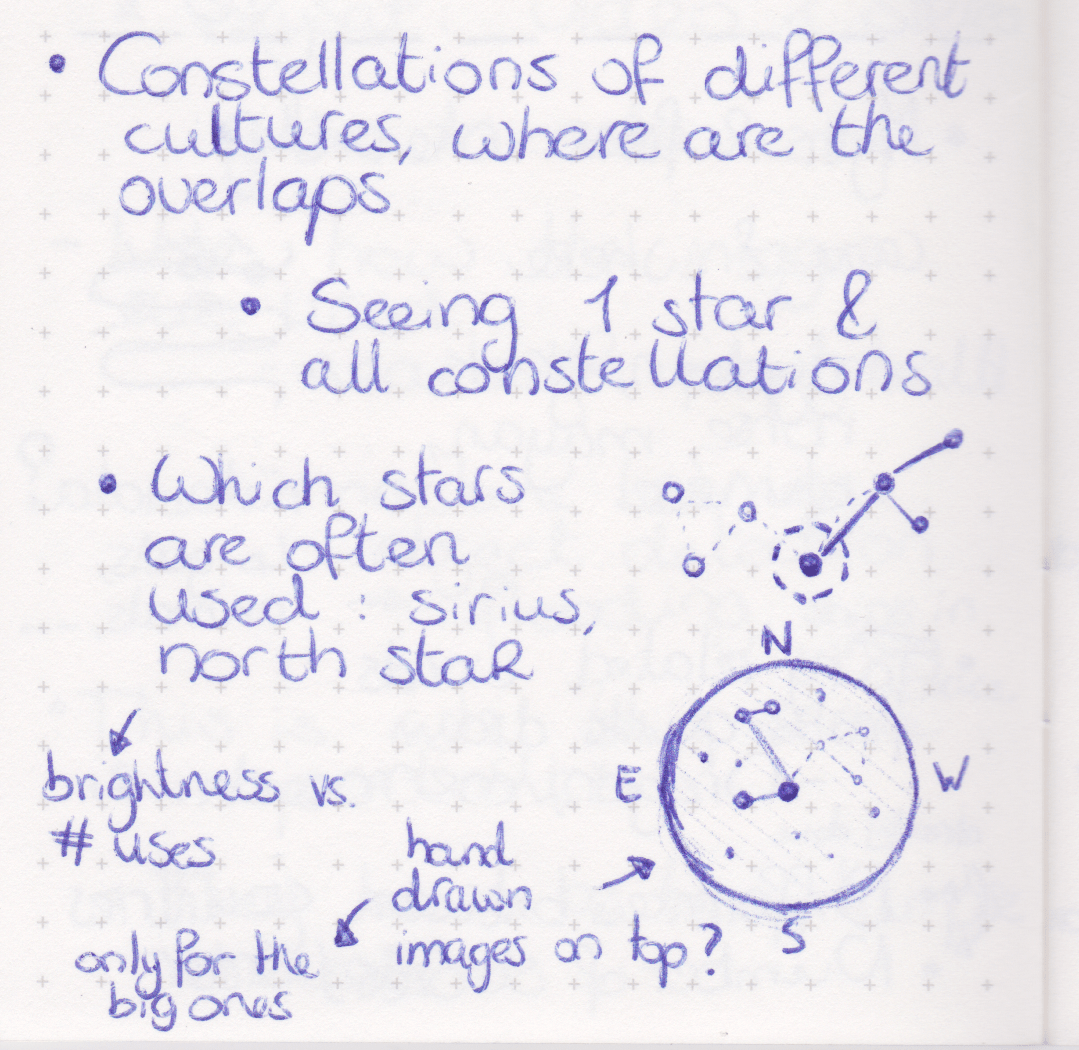 • Constellations of different
cultures, where are the
overlaps
• Seeing 1 star &
all constellations
• Which stars
are often
used : sirius,
north star
brightness vs.
# uses
hand
drawn
images on top?
only for the
big ones
N
E
W
S